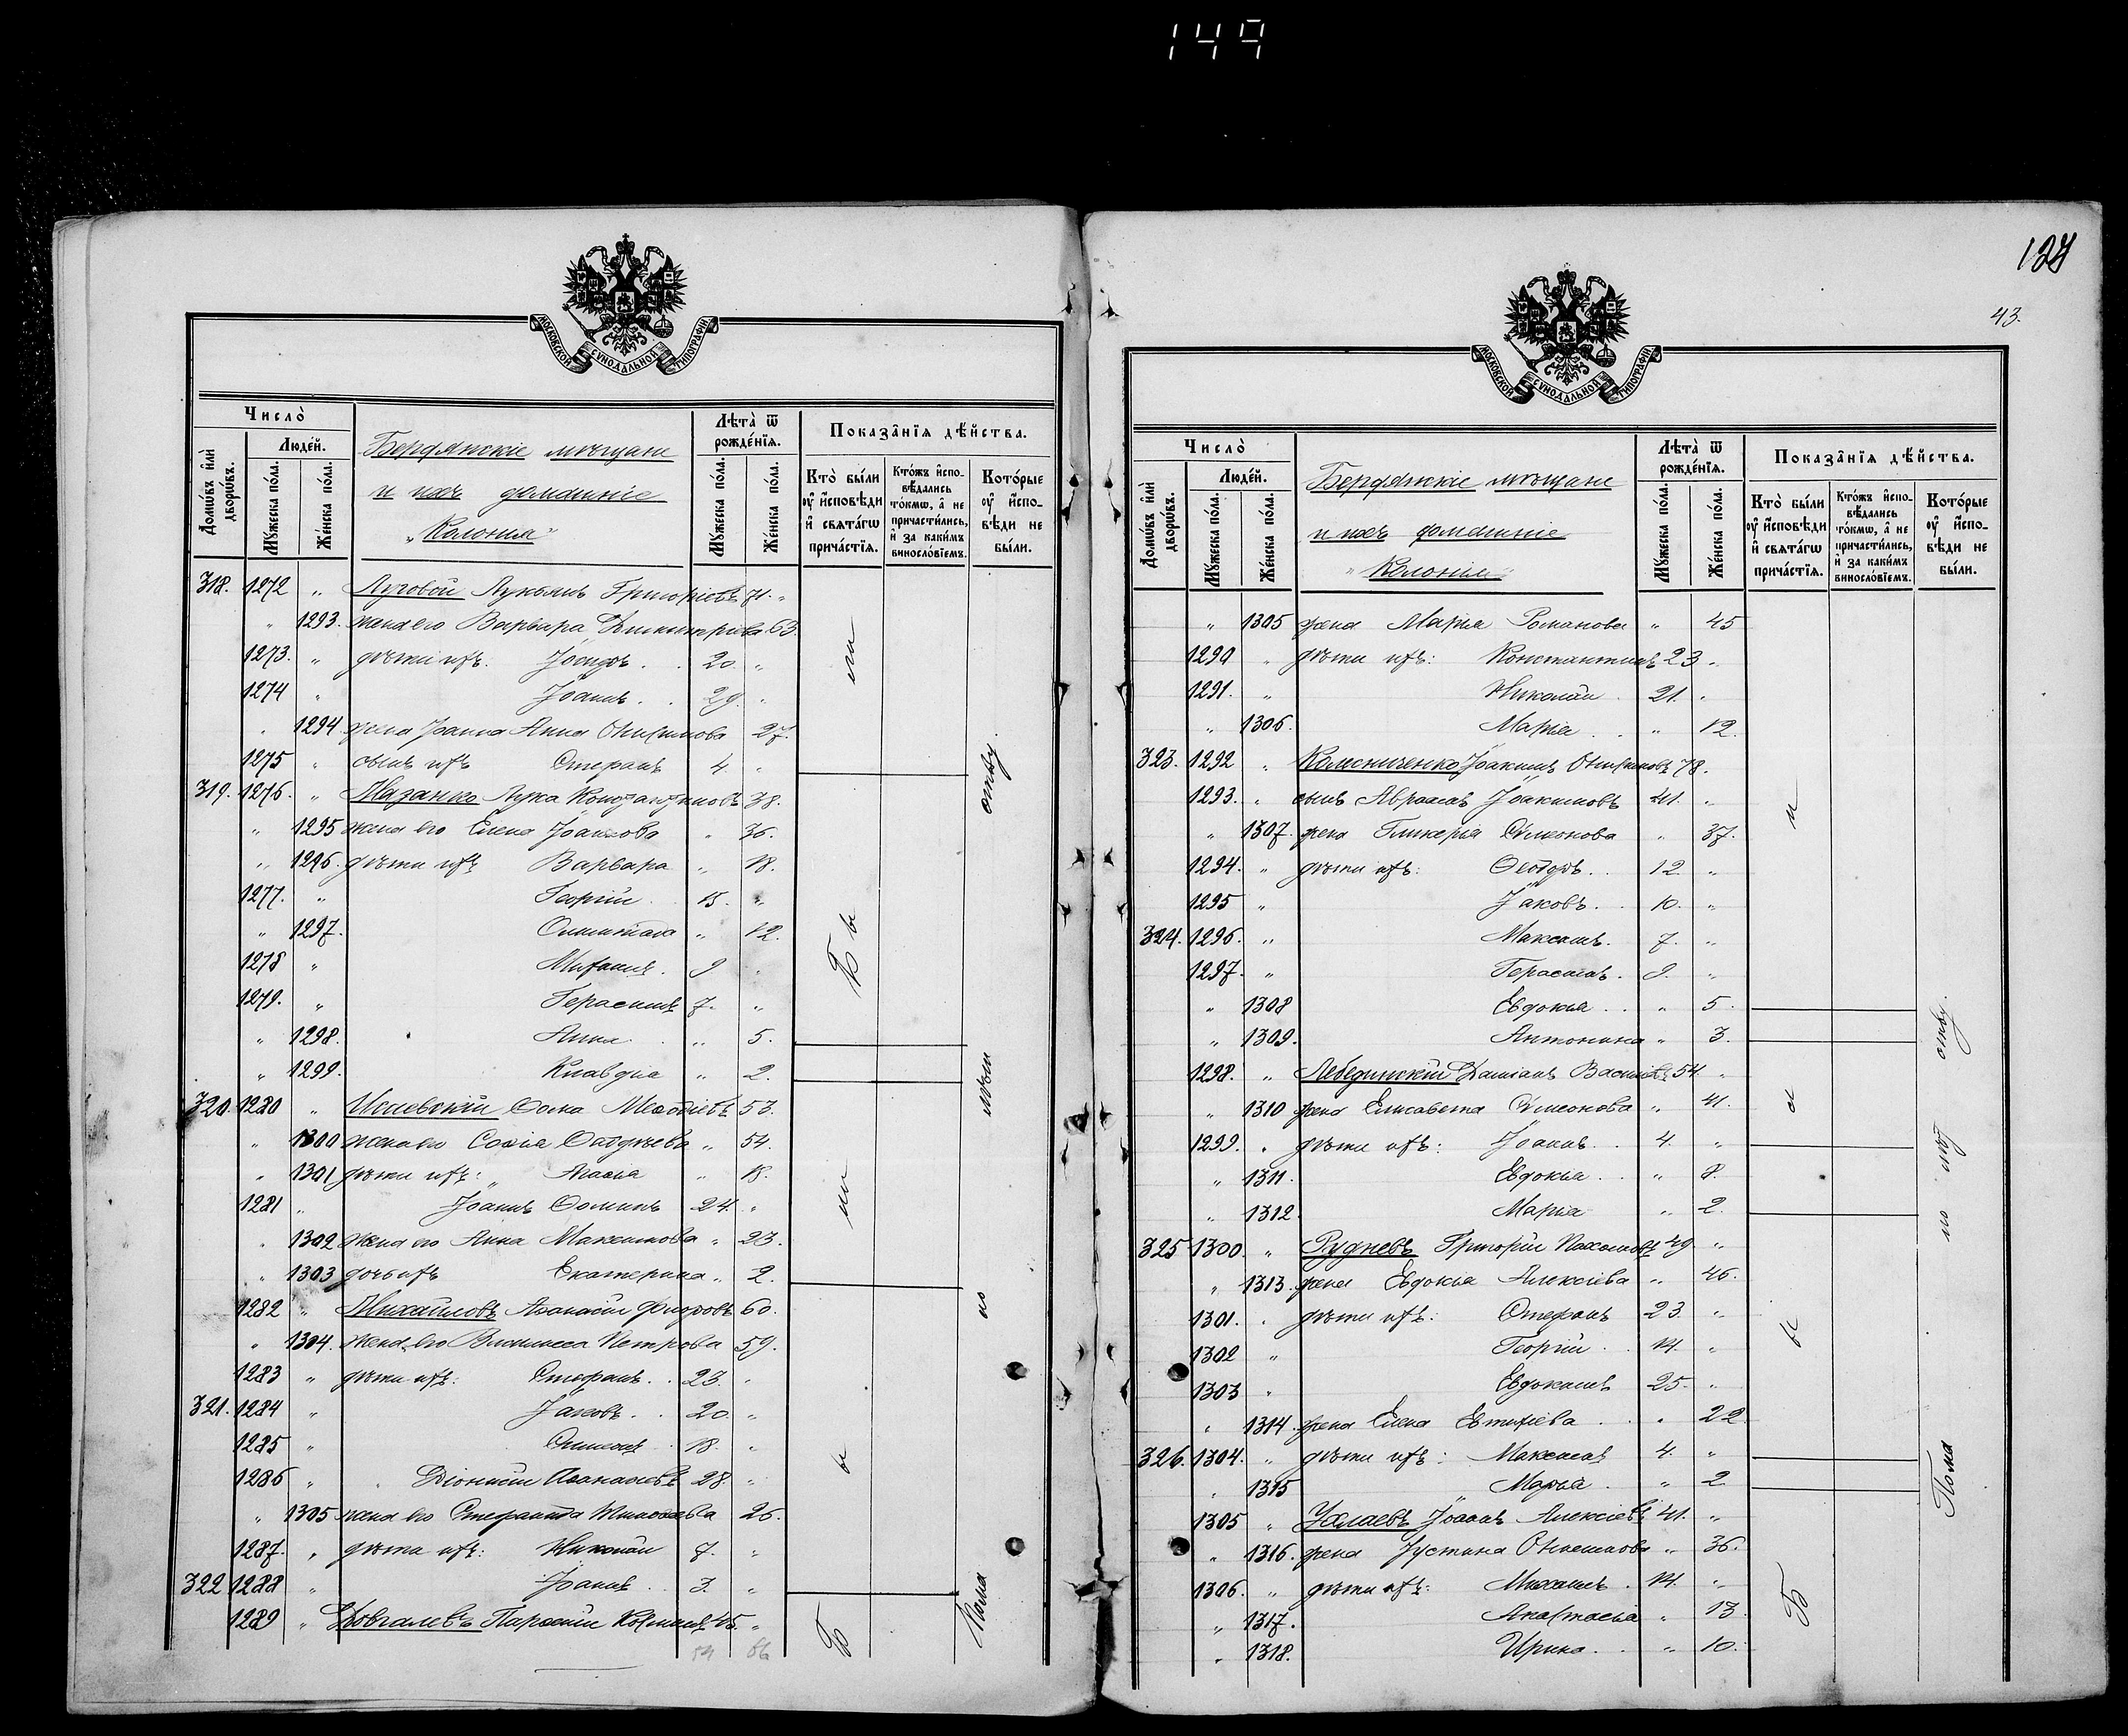 149
МОСКОВСКОЙ СѴНОДАЛЬНОЙ ТИПОГРАФІИ.
Число̀
Домѡ́въ и҆лѝ дворѡ́въ.
Люде́й.
Мꙋ́жеска по́ла.
Же́нска по́ла.
Бердянскіе мѣщане
и ихъ домашніе
„Колонія"
Лѣта̀ ѿ рожде́нїѧ.
Мꙋ́жеска по́ла.
Же́нска по́ла.
Показа̑нїѧ дѣ́йства.
Кто̀ бы́ли оу҆ и҆́сповѣди и҆ свѧта́гѡ прича́стїѧ.
Кто́жъ и҆спо-вѣ́дались то́кмѡ, а҆ не причасти́лись, и҆ за каки́мъ винословїемъ.
Кото́рые оу҆ и҆́спо-вѣди не бы́ли.
318. 1272 „ Луговой Лукьянъ Григоріевъ 71. „
„ 1293. жена его Варвара Димитріева 63.
1273. „ дѣти ихъ. Іосифъ. . 20. „
1274 „ Іоаннъ. . 29. „
„ 1294. жена Іоанна Анна 27.
1275 „ сынъ ихъ Стефанъ 4. „
319. 1276. „ Мазанко Лука Константиновъ 38.
„ 1295 жена его Елена Іоаннова „ 36.
„ 1296. дѣти ихъ Варвара „ 18.
1277. „ Георгій 15. „
„ 1297. „ 12.
1278 „ Михаилъ. 9 „
1279. „ Герасимъ 7. „
„ 1298. Анна. „ 5.
„ 1299. Клавдія „ 2.
320. 1280 „ Ѳома 53.
„ 1300 жена его Софія „ 54.
„ 1301 дѣти ихъ: „ „ 18.
1281 „ Іоаннъ Ѳоминъ 24. „
„ 1302 жена его Анна Максимова „ 23.
„ 1303 дочь ихъ Екатерина „ 2.
1282 „ Михайловъ Аѳанасій 60.
„ 1304. жена его Петрова 59.
1283 „ дѣти ихъ: Стефанъ. . 23. „
321. 1284 „ Іаковъ. . 20. „
1285 „ Симеонъ 18. „
1286 „ Діонисій Аѳанасіевъ 28. „
„ 1305 жена его Стефанида 26.
1287. „ дѣти ихъ: Николай 7. „
322 1288 „ Іоаннъ. 3. „
1289 „ Довгалевъ 45. „
54 66
Бы ли
Бы ли
Б
Пома по мѣш ству
127
43.
МОСКОВСКОЙ СѴНОДАЛЬНОЙ ТИПОГРАФІИ.
Число̀
Домѡ́въ и҆лѝ дворѡ́въ.
Люде́й.
Мꙋ́жеска по́ла.
Же́нска по́ла.
Бердянскіе мѣщане
и ихъ домашніе
„Колонія"
Лѣта̀ ѿ рожде́нїѧ.
Мꙋ́жеска по́ла.
Же́нска по́ла.
Показа̑нїѧ дѣ́йства.
Кто̀ бы́ли оу҆ и҆́сповѣди и҆ свѧта́гѡ прича́стїѧ.
Кто́жъ и҆спо-вѣ́дались то́кмѡ, а҆ не причасти́лись, и҆ за каки́мъ винословїемъ.
Кото́рые оу҆ и҆́спо-вѣди не бы́ли.
„ 1305 жена Марія Романова „ 45
1290 „ дѣти ихъ: Константинъ 23 „
1291. „ Николай 21. „
„ 1306. Марія. . „ 12.
323. 1292 „ Колесниченко Іоакимъ 78.
1293. „ сынъ Авраамъ Іоакимовъ 41. „
„ 1307. жена Гликерія Сѵмеонова „ 37.
1294. „ дѣти ихъ: Ѳеодоръ. . 12. „
1295 „ Іаковъ. . 10. „
324. 1296. „ Максимъ. 7. „
1297. „ Герасимъ. 9. „
„ 1308 Евдокія. . „ 5.
„ 1309. Антонина „ 3.
1298. „ Лебединскій Даміанъ Василіевъ 54. „
„ 1310 жена Елисавета Сѵмеонова „ 41.
1299. „ дѣти ихъ: Іоаннъ. . 4. „
„ 1311. Евдокія. . „ 8.
„ 1312. Марія „ 2.
325 1300. „ Рудневъ Григорій Пахомовъ 49. „
„ 1313. жена Евдокія Алексіева „ 46.
1301. „ дѣти ихъ: Стефанъ 23. „
1302 „ Георгій. . 14. „
1303 „ Евдокимъ 25. „
„ 1314. жена Елена Евтихіева. . „ 22
326. 1304. „ дѣти ихъ: Максимъ 4. „
„ 1315 Марія. „ 2
1305 „ Іоаннъ Алексіевъ 41. „
„ 1316. жена Іустина „ 36.
1306. „ дѣти ихъ: Михаилъ. 14. „
„ 1317. Анастасія „ 13.
„ 1318. Ирина. . „ 10.
Б ы л и
Пома по мѣш ству.